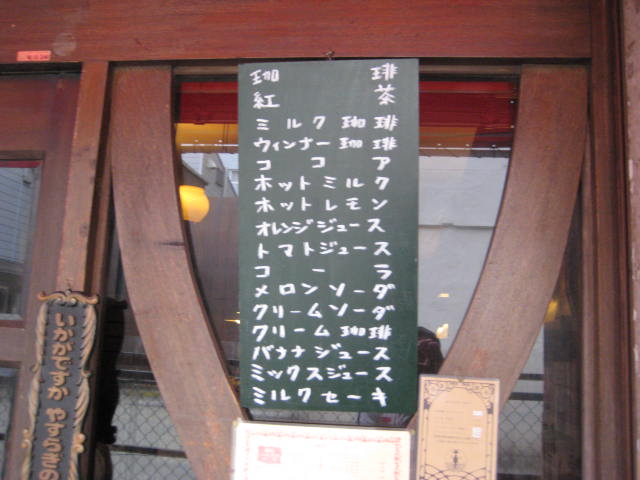 珈琲
紅茶
ミルク珈琲
ウィンナー珈琲
ココア
ホットミルク
ホットレモン
オレンジジュース
トマトジュース
コーラ
メロンソーダ
クリームソーダ
クリーム珈琲
バナナジュース
ミックスジュース
ミルクセーキ
いかがですか やすらぎの